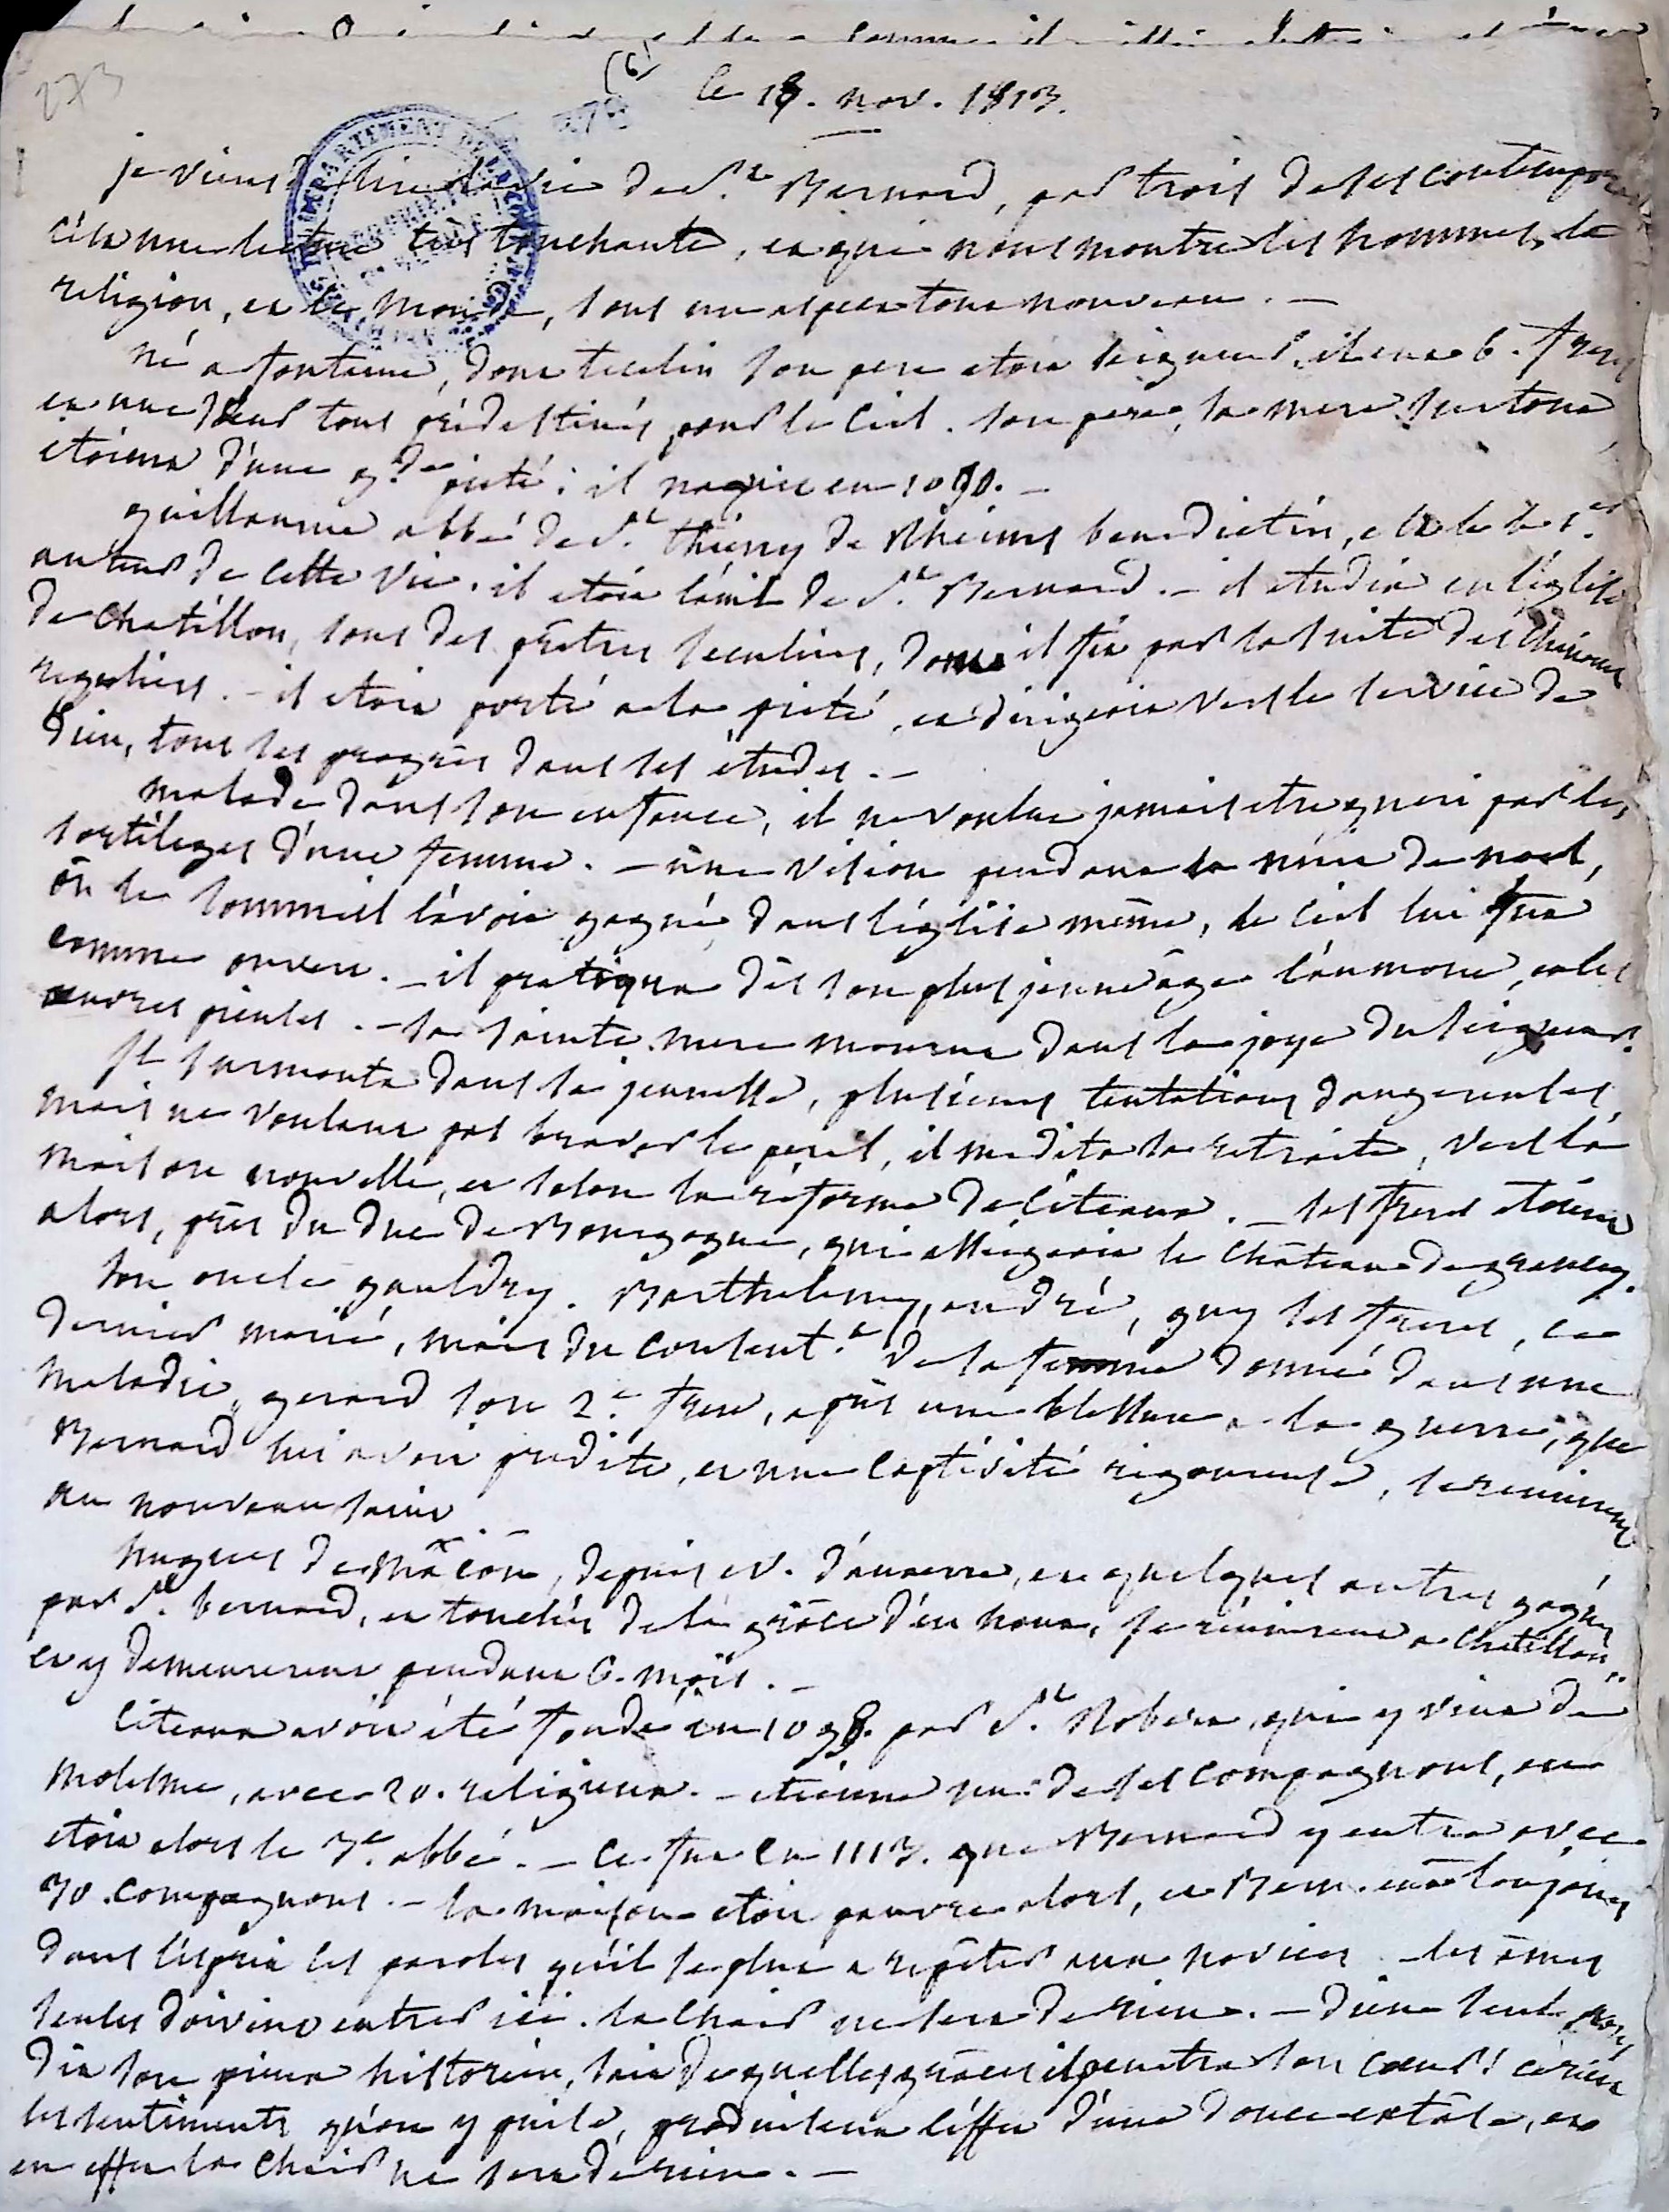 273
(6)
le 18. nov. 1813.
je viens de lire la vie de St. Bernard, par trois de ses contemporains
c'est une lecture très touchante, et qui nous montre les hommes, la
religion, et le monde, sous un aspect tout nouveau. —
né a fontaine, dont tecelin son pere etoit seigneur, il eut 6. freres
et une soeur tous prédestinés pour le Ciel. son pere, sa mere surtout
etoient d'une gde. piété : il naquit en 1090. —
guillaume abbé de St. thierry de Rheims benedictin, est le 1er.
auteur de cette vie. il etoit l'ami de St. Bernard. – il etudia en l'église
de Chatillon, sous des prêtres seculiers, dont il fit par la suite des chanoines
reguliers. – il etoit porté a la piété, et dirigeoit vers le service de
dieu, tous ses progrès dans ses études. —
malade dans son enfance, il ne voulut jamais etre gueri par les
sortilèges d'une femme. – une vision pendant la nuit de noel,
où le sommeil l'avoit gagné dans l'église même, le ciel lui fut
comme ouvert. – il pratiqua dès son plus jeune âge l'aumone, et les
œuvres pieuses. – sa sainte mere mourut dans la joye du seigneur.
Il surmonta dans sa jeunesse, plusieurs tentations dangereuses
mais ne voulant pas braver le peril, il medita sa retraite, vers la
maison nouvelle, et selon la réforme de Citeaux. – ses freres etoient
alors, près du duc de Bourgogne, qui assiegeoit le château de grancey.
son oncle gauldry. Barthelemy, andré, guy ses freres, ce
dernier marié, mais du consent.t de sa femme donné dans une
maladie, gerard son 2.e frere, après une blessure a la guerre, que
Bernard lui avoit predite, et une captivité rigoureuse, se reunirent
au nouveau saint. –
hugues de Mâcon, depuis ev. d'auxerre, et quelques autres gagnés
par St. bernard, et touchés de la grâce d'en haut, se réunirent a Chatillon,
et y demeurerent pendant 6. mois. —
Citeaux avoit été fondé en 1098. par St. Robert, qui y vint de
Molesme, avec 20. religieux. – etienne un de ses compagnons, en
etoit alors le 3.e abbé. – Ce fut en 1113. que Bernard y entra avec
30. compagnons. – la maison etoit pauvre alors, et Bern. eut toujours
dans l'esprit les paroles qu'il se plut a repéter aux novices – les âmes
seules doivent entrer ici. la chair ne sert de rien. – dieu seul
dit son pieux historien, sait de quelles grâces il penetra son coeur!
les sentiments qu'on y puise, produisent l'effet d'une douce extâse, et
en effet la chair ne sert de rien. —